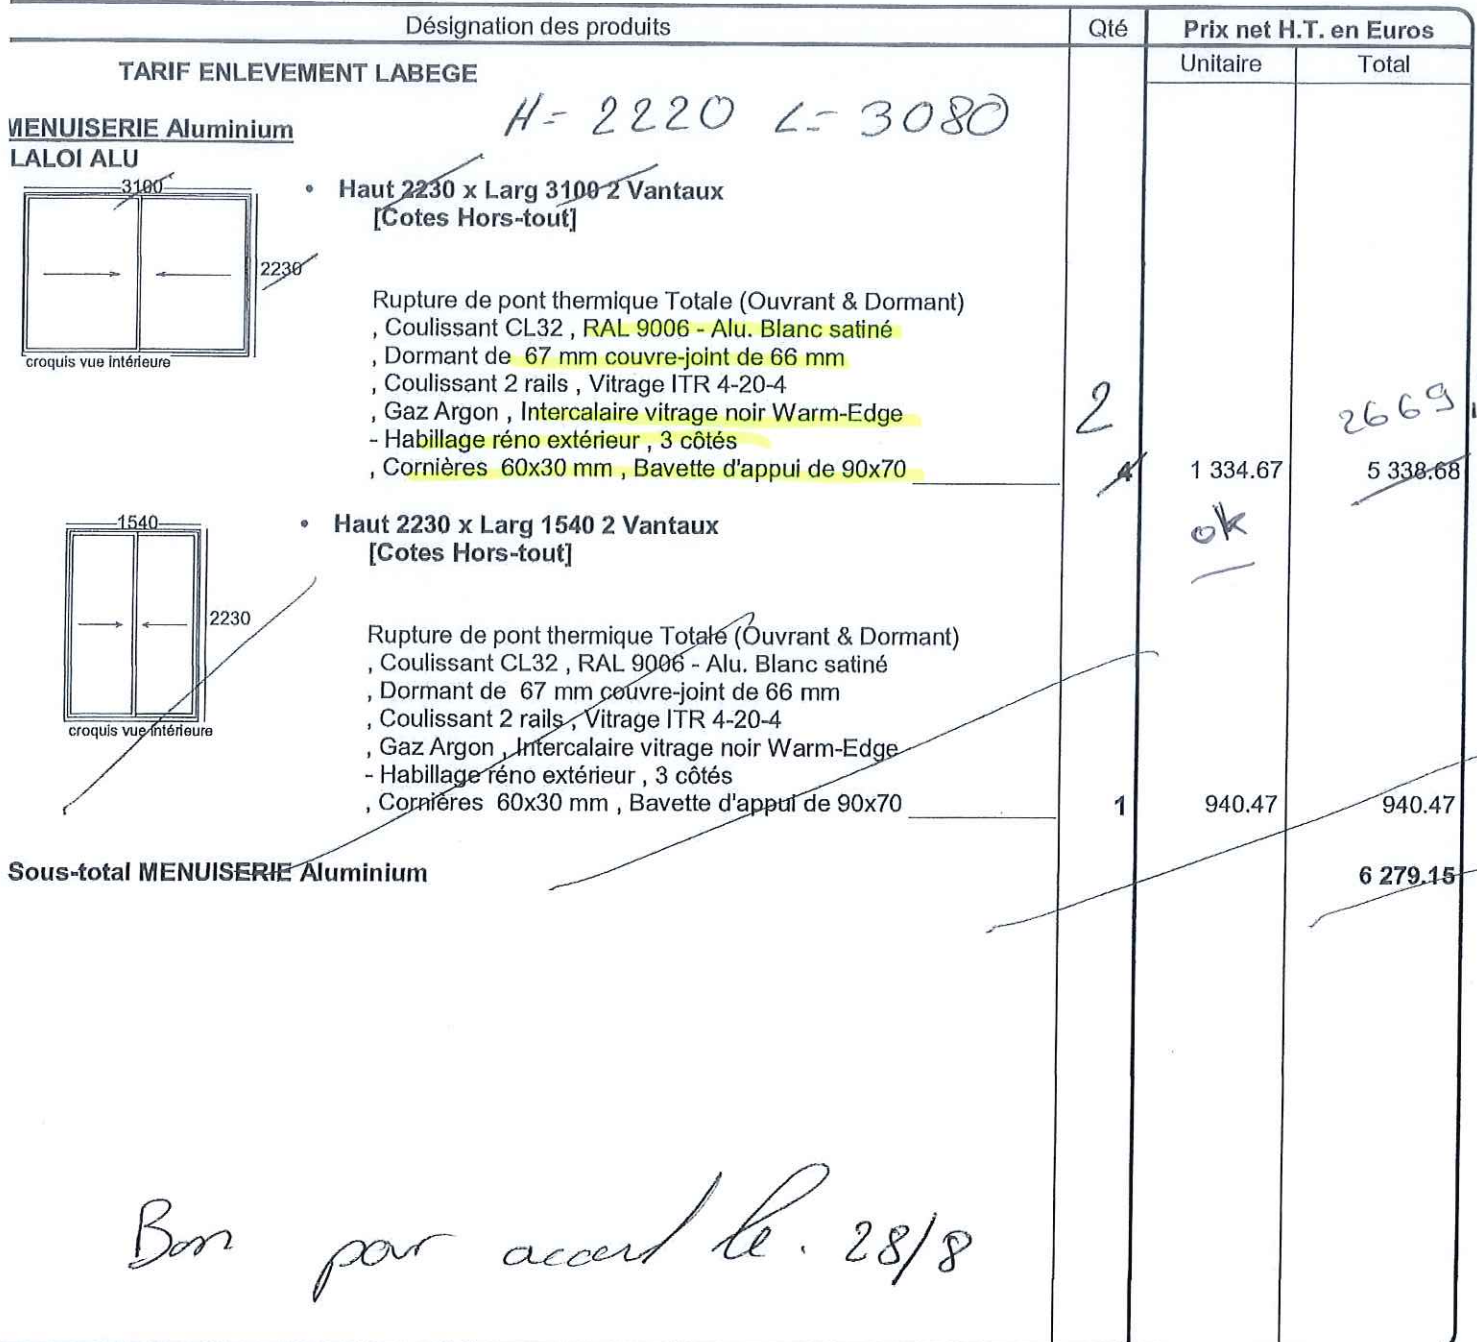 Désignation des produits Qté Prix net H.T. en Euros
Unitaire Total
TARIF ENLEVEMENT LABEGE
H= 2220 L= 3080
MENUISERIE Aluminium
LALOI ALU
3100
• Haut 2230 x Larg 3100 2 Vantaux
[Cotes Hors-tout]
2230
Rupture de pont thermique Totale (Ouvrant & Dormant)
, Coulissant CL32 , RAL 9006 - Alu. Blanc satiné
, Dormant de 67 mm couvre-joint de 66 mm
croquis vue intérieure
, Coulissant 2 rails , Vitrage ITR 4-20-4
, Gaz Argon , Intercalaire vitrage noir Warm-Edge
2 2669
- Habillage réno extérieur , 3 côtés
, Cornières 60x30 mm , Bavette d'appui de 90x70 4 1 334.67 5 338.68
ok
1540
• Haut 2230 x Larg 1540 2 Vantaux
[Cotes Hors-tout]
2230
Rupture de pont thermique Totale (Ouvrant & Dormant)
, Coulissant CL32 , RAL 9006 - Alu. Blanc satiné
, Dormant de 67 mm couvre-joint de 66 mm
, Coulissant 2 rails , Vitrage ITR 4-20-4
croquis vue intérieure
, Gaz Argon , Intercalaire vitrage noir Warm-Edge
- Habillage réno extérieur , 3 côtés
, Cornières 60x30 mm , Bavette d'appui de 90x70 1 940.47 940.47
Sous-total MENUISERIE Aluminium 6 279.15
Bon pour accord le. 28/8